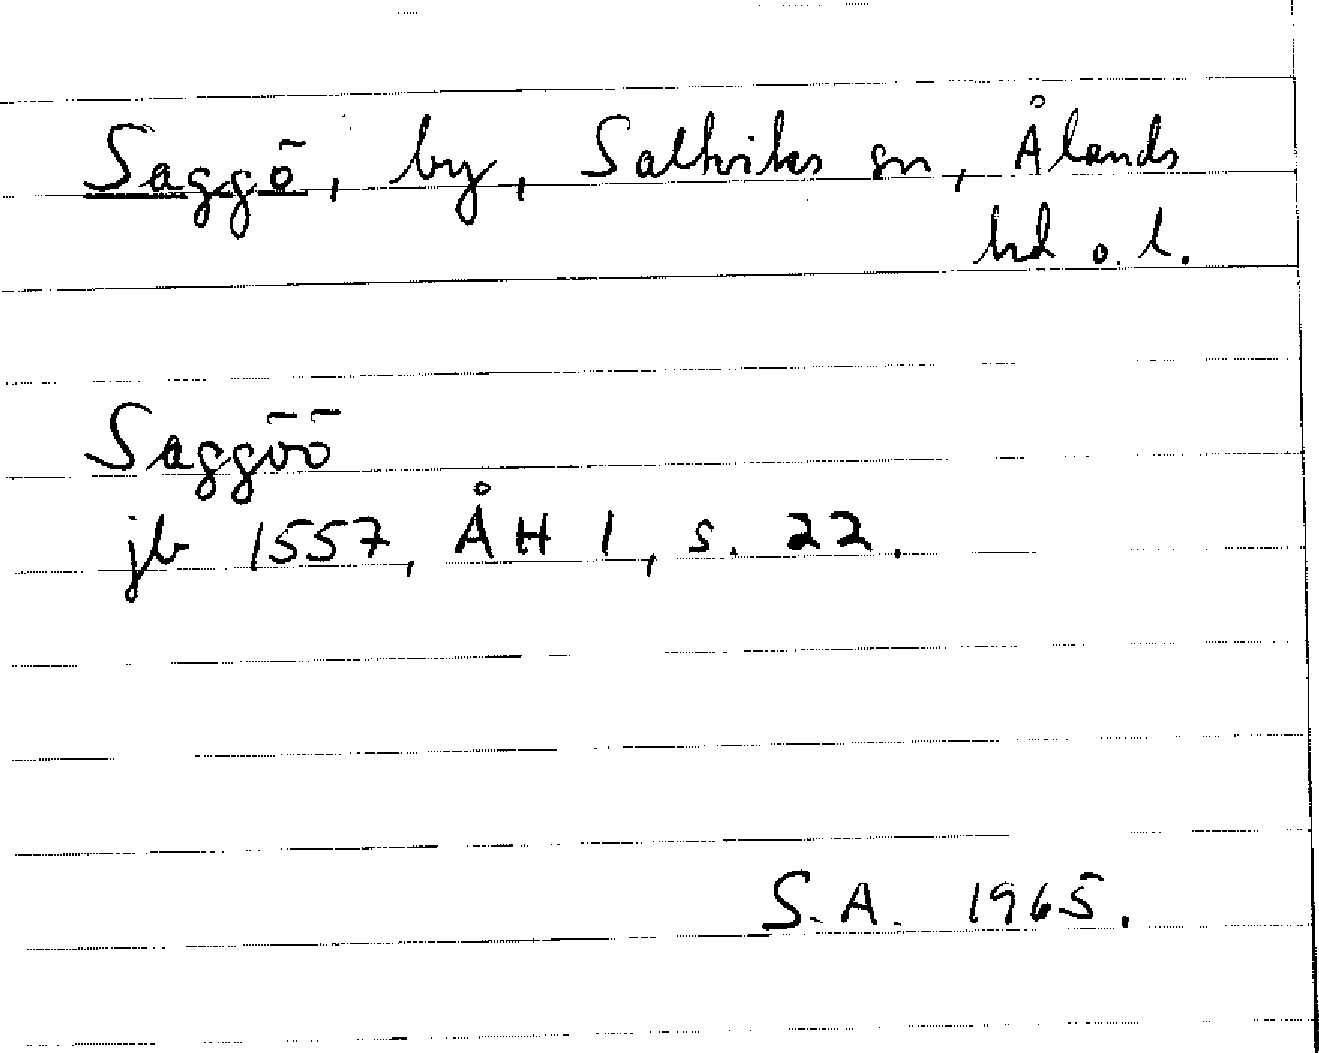 Saggö, by, Saltviks sn, Ålands
hd o. l.
Saggöö
jb 1557, ÅH 1, s. 22.
S.A. 1965.